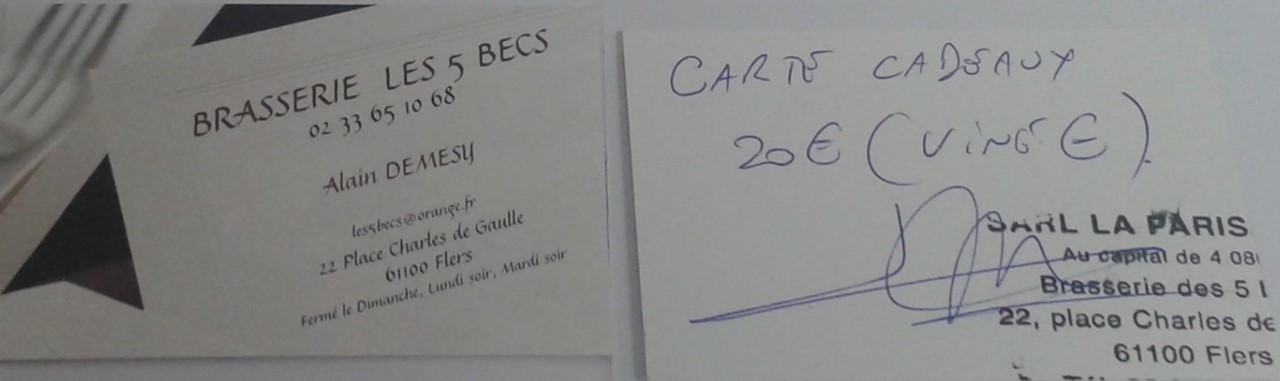 BRASSERIE LES 5 BECS
02 33 65 10 68
Alain DEMESY
les5becs@orange.fr
22 Place Charles de Gaulle
61100 Flers
Fermé le Dimanche, Lundi soir, Mardi soir
CARTE CADEAUX
20€ (VINGT €).
SARL LA PARIS
Au capital de 4 08
Brasserie des 5
22, place Charles de
61100 Flers